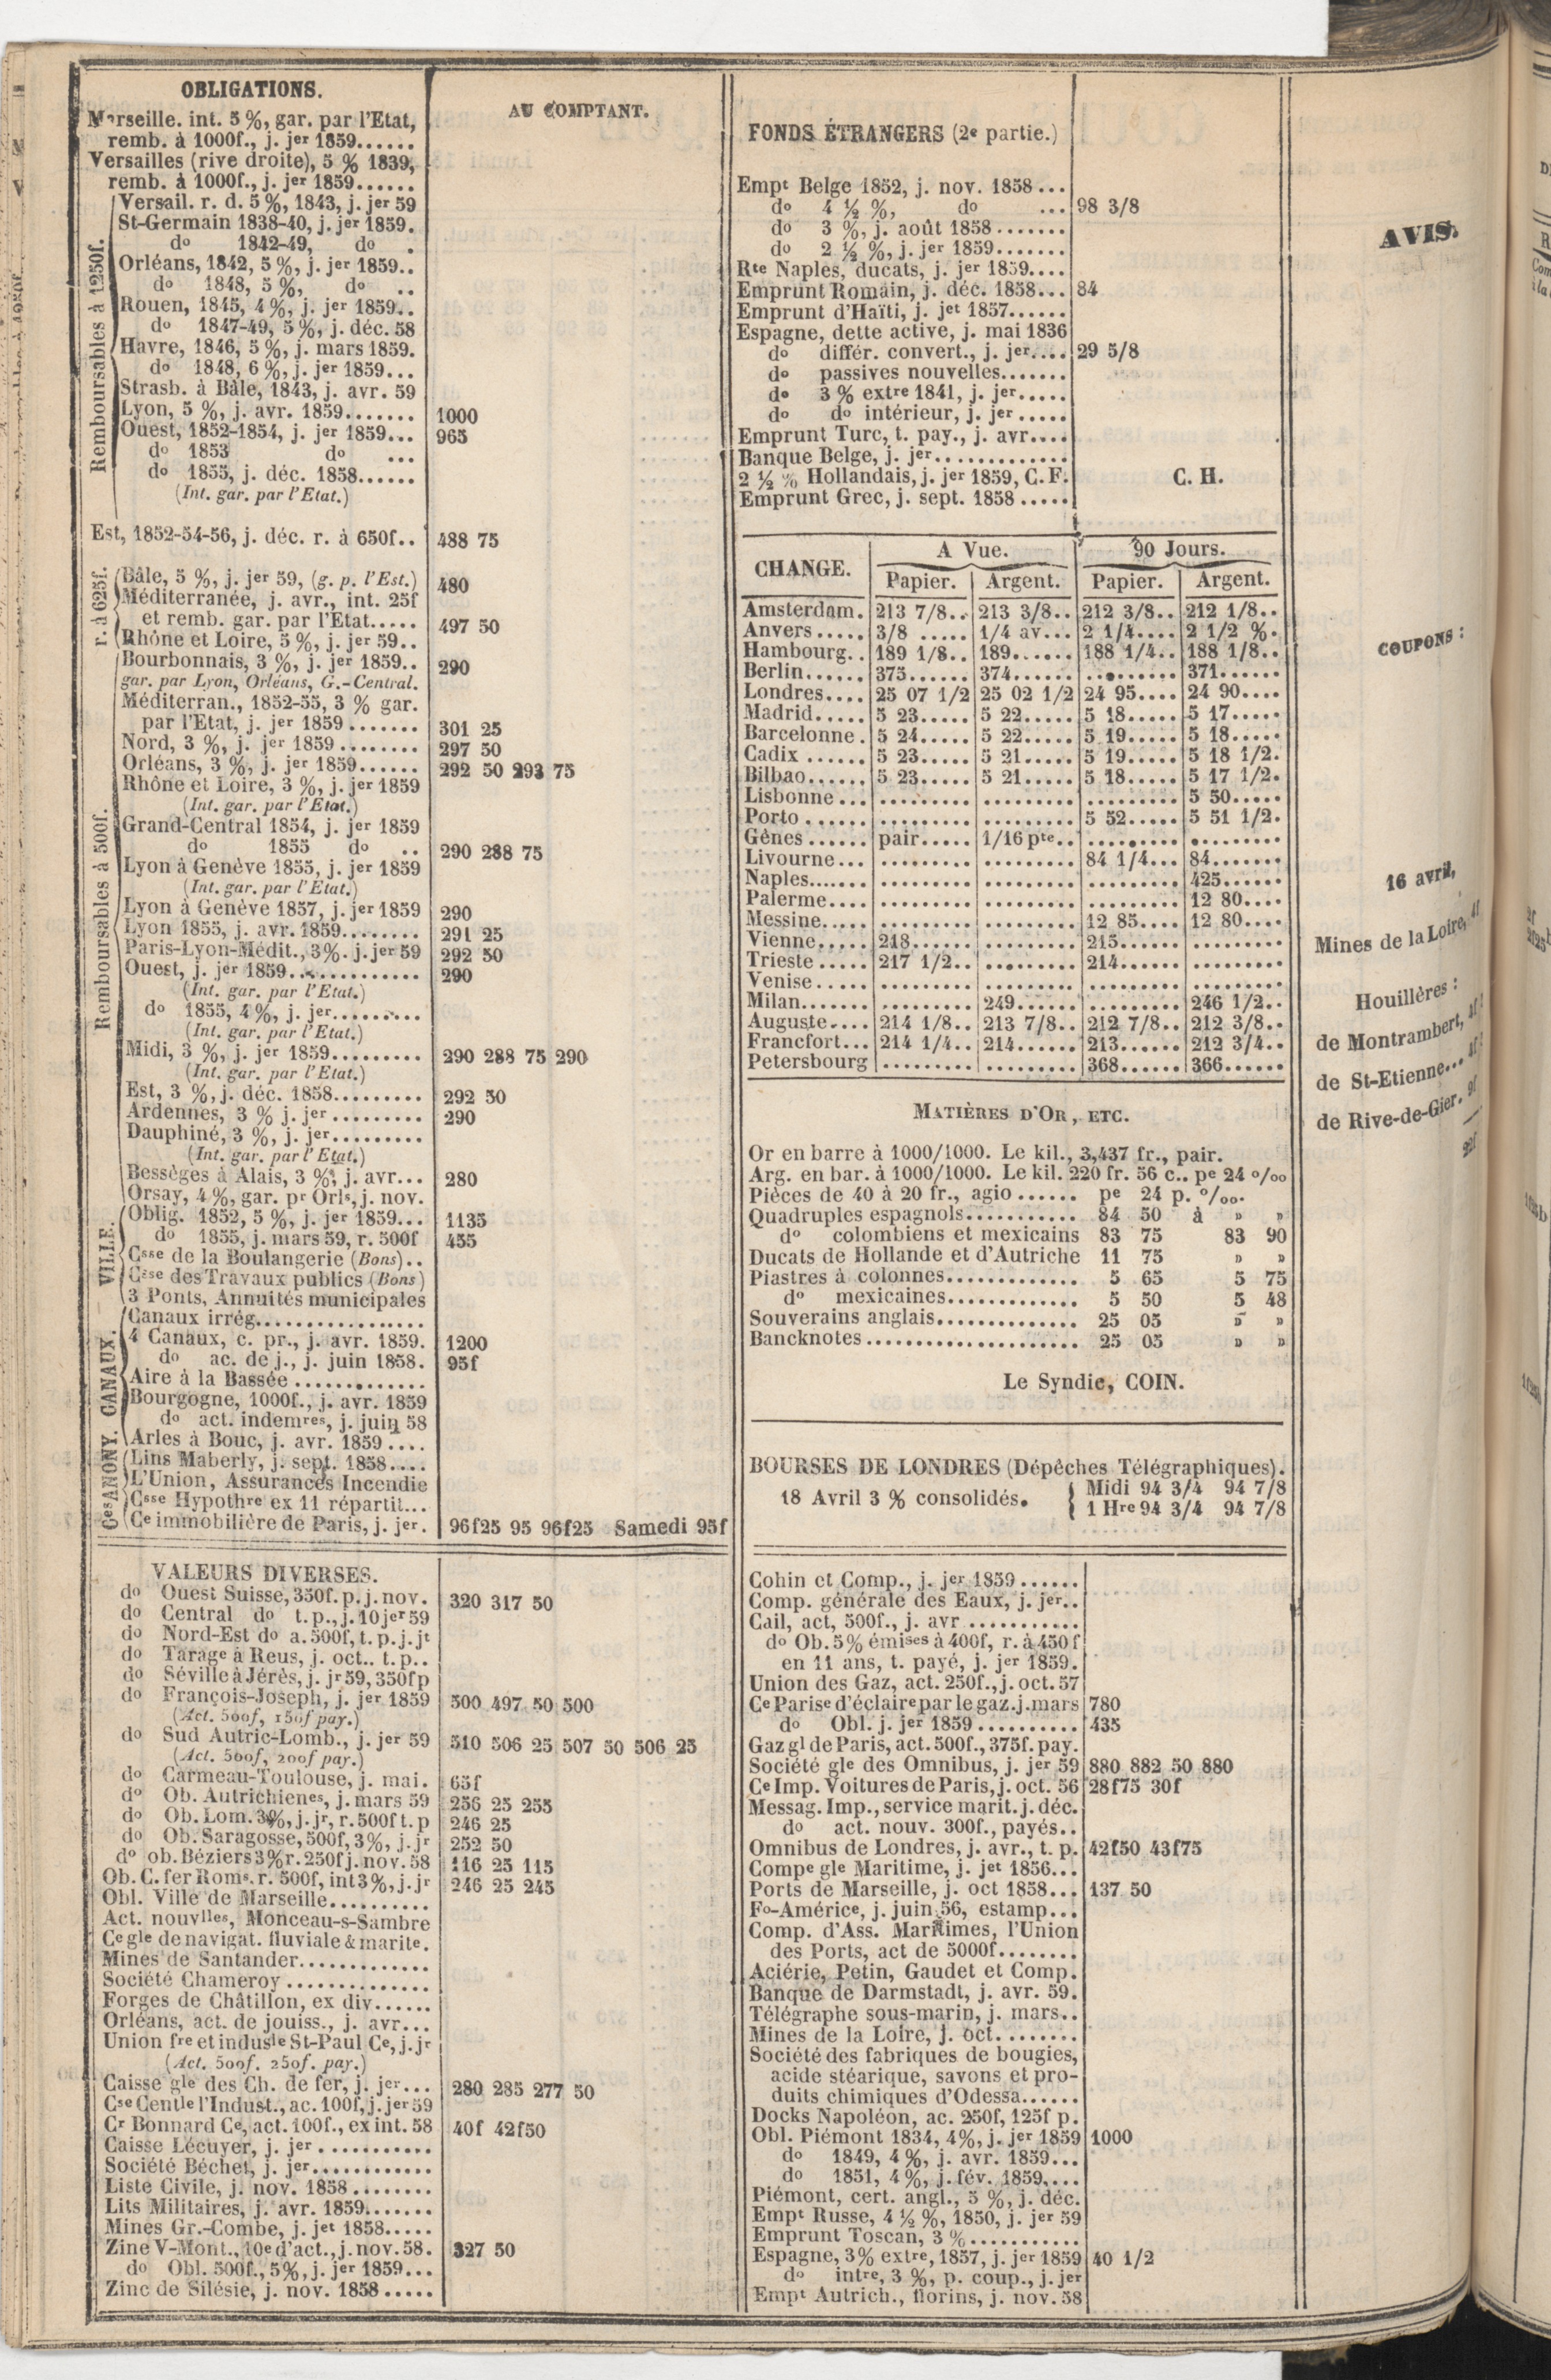 OBLIGATIONS.
AU COMPTANT.
Marseille. int. 5 %, gar. par l'Etat,
remb. à 1000f., j. jer 1859......
Versailles (rive droite), 5 % 1839,
remb. à 1000f., j. jer 1859......
Remboursables à 1250f.
Versail. r. d. 5 %, 1843, j. jer 59
St-Germain 1838-40, j. jer 1859.
do 1842-49, do .
Orléans, 1842, 5 %, j. jer 1859..
do 1848, 5 %, do ..
Rouen, 1845, 4 %, j. jer 1859..
do 1847-49, 5 %, j. déc. 58
Havre, 1846, 5 %, j. mars 1859.
do 1848, 6 %, j. jer 1859...
Strasb. à Bâle, 1843, j. avr. 59
Lyon, 5 %, j. avr. 1859....... 1000
Ouest, 1852-1854, j. jer 1859... 965
do 1853 do ...
do 1855, j. déc. 1858......
(Int. gar. par l'Etat.)
Est, 1852-54-56, j. déc. r. à 650f.. 488 75
r. à 625f.
Bâle, 5 %, j. jer 59, (g. p. l'Est.) 480
Méditerranée, j. avr., int. 25f
et remb. gar. par l'Etat..... 497 50
Rhône et Loire, 5 %, j. jer 59..
Remboursables à 500f.
Bourbonnais, 3 %, j. jer 1859.. 290
gar. par Lyon, Orléans, G.-Central.
Méditerran., 1852-55, 3 % gar.
par l'Etat, j. jer 1859....... 301 25
Nord, 3 %, j. jer 1859........ 297 50
Orléans, 3 %, j. jer 1859...... 292 50 293 75
Rhône et Loire, 3 %, j. jer 1859
(Int. gar. par l'Etat.)
Grand-Central 1854, j. jer 1859
do 1855 do .. 290 288 75
Lyon à Genève 1855, j. jer 1859
(Int. gar. par l'Etat.)
Lyon à Genève 1857, j. jer 1859 290
Lyon 1855, j. avr. 1859........ 291 25
Paris-Lyon-Médit., 3%. j. jer 59 292 50
Ouest, j. jer 1859............. 290
(Int. gar. par l'Etat.)
do 1855, 4 %, j. jer..........
(Int. gar. par l'Etat.)
Midi, 3 %, j. jer 1859......... 290 288 75 290
(Int. gar. par l'Etat.)
Est, 3 %, j. déc. 1858......... 292 50
Ardennes, 3 % j. jer ......... 290
Dauphiné, 3 %, j. jer.........
(Int. gar. par l'Etat.)
Bessèges à Alais, 3 %, j. avr... 280
Orsay, 4 %, gar. pr Orls, j. nov.
VILLE.
Oblig. 1852, 5 %, j. jer 1859... 1135
do 1855, j. mars 59, r. 500f 455
Csse de la Boulangerie (Bons)..
Csse des Travaux publics (Bons)
3 Ponts, Annuités municipales
CANAUX.
Canaux irrég.................
4 Canaux, c. pr., j. avr. 1859. 1200
do ac. de j., j. juin 1858. 95f
Aire à la Bassée .............
Bourgogne, 1000f., j. avr. 1859
do act. indemres, j. juin 58
Arles à Bouc, j. avr. 1859 ....
Ces ANONY.
Lins Maberly, j. sept. 1858....
L'Union, Assurances Incendie
Csse Hypothre ex 11 répartit...
Ce immobilière de Paris, j. jer. 96f25 95 96f25 Samedi 95f
VALEURS DIVERSES.
do Ouest Suisse, 350f. p. j. nov. 320 317 50
do Central do t. p., j. 10 jer 59
do Nord-Est do a. 500f, t. p. j. jt
do Tarage à Reus, j. oct.. t. p..
do Séville à Jérès, j. jr 59, 350f p
do François-Joseph, j. jer 1859 500 497 50 500
(Act. 500f, 150f pay.)
do Sud Autric-Lomb., j. jer 59 510 506 25 507 50 506 25
(Act. 500f, 200f pay.)
do Carmeau-Toulouse, j. mai. 65f
do Ob. Autrichienes, j. mars 59 256 25 255
do Ob. Lom. 3%, j. jr, r. 500f t. p 246 25
do Ob. Saragosse, 500f, 3%, j. jr 252 50
do ob. Béziers 3% r. 250f j. nov. 58 116 25 115
Ob. C. fer Roms. r. 500f, int 3%, j. jr 246 25 245
Obl. Ville de Marseille..........
Act. nouvlles, Monceau-s-Sambre
Ce gle de navigat. fluviale & marite.
Mines de Santander.............
Société Chameroy ..............
Forges de Châtillon, ex div......
Orléans, act. de jouiss., j. avr...
Union fre et indusle St-Paul Ce, j. jr
(Act. 500f. 250f. pay.)
Caisse gle des Ch. de fer, j. jer... 280 285 277 50
Cse Centle l'Indust., ac. 100f, j. jer 59
Cr Bonnard Ce, act. 100f., ex int. 58 40f 42f50
Caisse Lécuyer, j. jer ...........
Société Béchet, j. jer............
Liste Civile, j. nov. 1858........
Lits Militaires, j. avr. 1859.......
Mines Gr.-Combe, j. jet 1858.....
Zinc V-Mont., 10e d'act., j. nov. 58. 327 50
do Obl. 500f., 5%, j. jer 1859...
Zinc de Silésie, j. nov. 1858 .....
FONDS ÉTRANGERS (2e partie.)
Empt Belge 1852, j. nov. 1858...
do 4 ½ %, do ... 98 3/8
do 3 %, j. août 1858.......
do 2 ½ %, j. jer 1859.......
Rte Naples, ducats, j. jer 1859....
Emprunt Romain, j. déc. 1858... 84
Emprunt d'Haïti, j. jet 1857......
Espagne, dette active, j. mai 1836
do différ. convert., j. jer.... 29 5/8
do passives nouvelles.......
do 3 % extre 1841, j. jer.....
do do intérieur, j. jer .....
Emprunt Turc, t. pay., j. avr....
Banque Belge, j. jer.............
2 ½ % Hollandais, j. jer 1859, C. F. C. H.
Emprunt Grec, j. sept. 1858 .....
CHANGE. A Vue. 90 Jours.
Papier. Argent. Papier. Argent.
Amsterdam. 213 7/8.. 213 3/8.. 212 3/8.. 212 1/8..
Anvers ..... 3/8 ..... 1/4 av... 2 1/4.... 2 1/2 %.
Hambourg.. 189 1/8.. 189...... 188 1/4.. 188 1/8..
Berlin...... 375...... 374...... ......... 371......
Londres.... 25 07 1/2 25 02 1/2 24 95.... 24 90....
Madrid..... 5 23..... 5 22..... 5 18..... 5 17.....
Barcelonne. 5 24..... 5 22..... 5 19..... 5 18.....
Cadix ...... 5 23..... 5 21..... 5 19..... 5 18 1/2.
Bilbao...... 5 23..... 5 21..... 5 18..... 5 17 1/2.
Lisbonne... ......... ......... ......... 5 50.....
Porto ...... ......... ......... 5 52..... 5 51 1/2.
Gênes ...... pair..... 1/16 pte.. ......... .........
Livourne... ......... ......... 84 1/4... 84.......
Naples....... ......... ......... ......... 425......
Palerme.... ......... ......... ......... 12 80....
Messine..... ......... ......... 12 85.... 12 80....
Vienne..... 218...... ......... 215...... .........
Trieste ..... 217 1/2.. ......... 214...... .........
Venise..... ......... ......... ......... .........
Milan....... ......... 249...... ......... 246 1/2..
Auguste.... 214 1/8.. 213 7/8.. 212 7/8.. 212 3/8..
Francfort... 214 1/4.. 214...... 213...... 212 3/4..
Petersbourg ......... ......... 368...... 366......
MATIÈRES D'OR, ETC.
Or en barre à 1000/1000. Le kil., 3,437 fr., pair.
Arg. en bar. à 1000/1000. Le kil. 220 fr. 56 c.. pe 24 o/oo
Pièces de 40 à 20 fr., agio ...... pe 24 p. o/oo.
Quadruples espagnols........... 84 50 à » »
do colombiens et mexicains 83 75 83 90
Ducats de Hollande et d'Autriche 11 75 » »
Piastres à colonnes............. 5 65 5 75
do mexicaines............. 5 50 5 48
Souverains anglais.............. 25 05 » »
Bancknotes..................... 25 05 » »
Le Syndic, COIN.
BOURSES DE LONDRES (Dépêches Télégraphiques).
18 Avril 3 % consolidés. { Midi 94 3/4 94 7/8
1 Hre 94 3/4 94 7/8
Cohin et Comp., j. jer 1859 ......
Comp. générale des Eaux, j. jer..
Cail, act, 500f., j. avr ...........
do Ob. 5% émises à 400f, r. à 450f
en 11 ans, t. payé, j. jer 1859.
Union des Gaz, act. 250f., j. oct. 57
Ce Parise d'éclaire par le gaz. j. mars 780
do Obl. j. jer 1859 .......... 435
Gaz gl de Paris, act. 500f., 375f. pay.
Société gle des Omnibus, j. jer 59 880 882 50 880
Ce Imp. Voitures de Paris, j. oct. 56 28f75 30f
Messag. Imp., service marit. j. déc.
do act. nouv. 300f., payés..
Omnibus de Londres, j. avr., t. p. 42f50 43f75
Compe gle Maritime, j. jet 1856...
Ports de Marseille, j. oct 1858... 137 50
Fo-Américe, j. juin 56, estamp...
Comp. d'Ass. Maritimes, l'Union
des Ports, act de 5000f........
Aciérie, Petin, Gaudet et Comp.
Banque de Darmstadt, j. avr. 59.
Télégraphe sous-marin, j. mars..
Mines de la Loire, j. oct.........
Société des fabriques de bougies,
acide stéarique, savons et pro-
duits chimiques d'Odessa......
Docks Napoléon, ac. 250f, 125f p.
Obl. Piémont 1834, 4%, j. jer 1859 1000
do 1849, 4 %, j. avr. 1859...
do 1851, 4 %, j. fév. 1859....
Piémont, cert. angl., 5 %, j. déc.
Empt Russe, 4 ½ %, 1850, j. jer 59
Emprunt Toscan, 3 %...........
Espagne, 3% extre, 1857, j. jer 1859 40 1/2
do intre, 3 %, p. coup., j. jer
Empt Autrich., florins, j. nov. 58
AVIS.
COUPONS :
16 avril,
Mines de la Loire,
Houillères :
de Montrambert,
de St-Etienne...
de Rive-de-Gier.